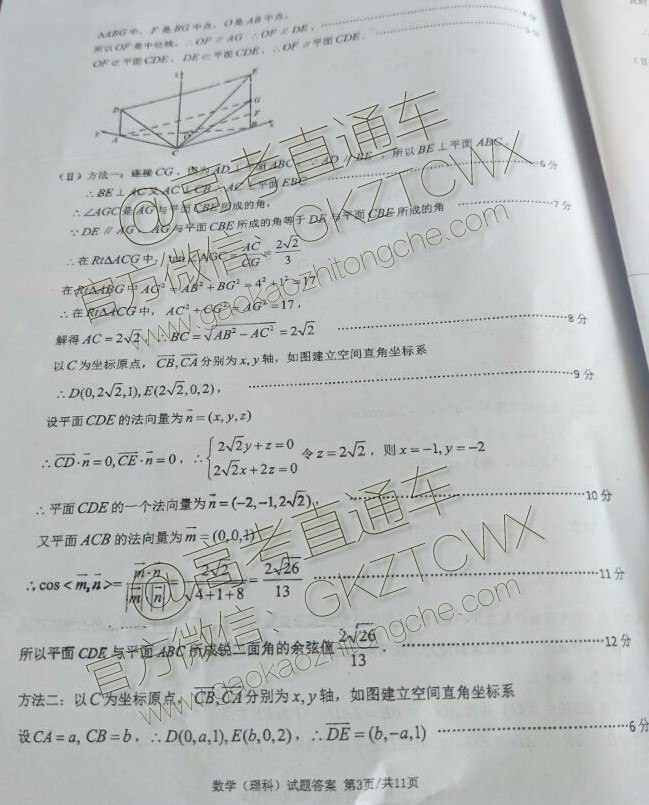 △ABG中，F是BG中点，O是AB中点，
所以OF是中位线，∴OF∥AG ∴OF∥DE，……4分
OF⊄平面CDE，DE⊂平面CDE，∴OF∥平面CDE．……5分
D
E
G
F
A
O
B
C
x
y
（Ⅱ）方法一：连接CG，因为AD⊥平面ABC，∵AD∥BE，所以BE⊥平面ABC，
∴BE⊥AC又AC⊥CB∴AC⊥平面EBC……6分
∴∠AGC是AG与平面CBE所成的角，
∵DE∥AG∴AG与平面CBE所成的角等于DE与平面CBE所成的角……7分
∴在Rt△ACG中，tan∠AGC=AC/CG=2√2/3
在Rt△ABG中AG²=AB²+BG²=4²+1²=17
∴在Rt△ACG中，AC²+CG²=AG²=17，
解得AC=2√2 ∴BC=√(AB²−AC²)=2√2……8分
以C为坐标原点，CB,CA分别为x,y轴，如图建立空间直角坐标系
∴D(0,2√2,1),E(2√2,0,2)，……9分
设平面CDE的法向量为n=(x,y,z)
∴CD·n=0,CE·n=0，∴{2√2y+z=0 2√2x+2z=0 令z=2√2，则x=−1,y=−2
∴平面CDE的一个法向量为n=(−2,−1,2√2)，……10分
又平面ACB的法向量为m=(0,0,1)
∴cos<m,n>=m·n/|m||n|=2√2/√(4+1+8)=2√26/13……11分
所以平面CDE与平面ABC所成锐二面角的余弦值2√26/13．……12分
方法二：以C为坐标原点，CB,CA分别为x,y轴，如图建立空间直角坐标系
设CA=a, CB=b，∴D(0,a,1),E(b,0,2)，∴DE=(b,−a,1)……6分
数学（理科）试题答案 第3页/共11页
@高考直通车
官方微信：GKZTCWX
www.gaokaozhitongche.com
@高考直通车
官方微信：GKZTCWX
www.gaokaozhitongche.com